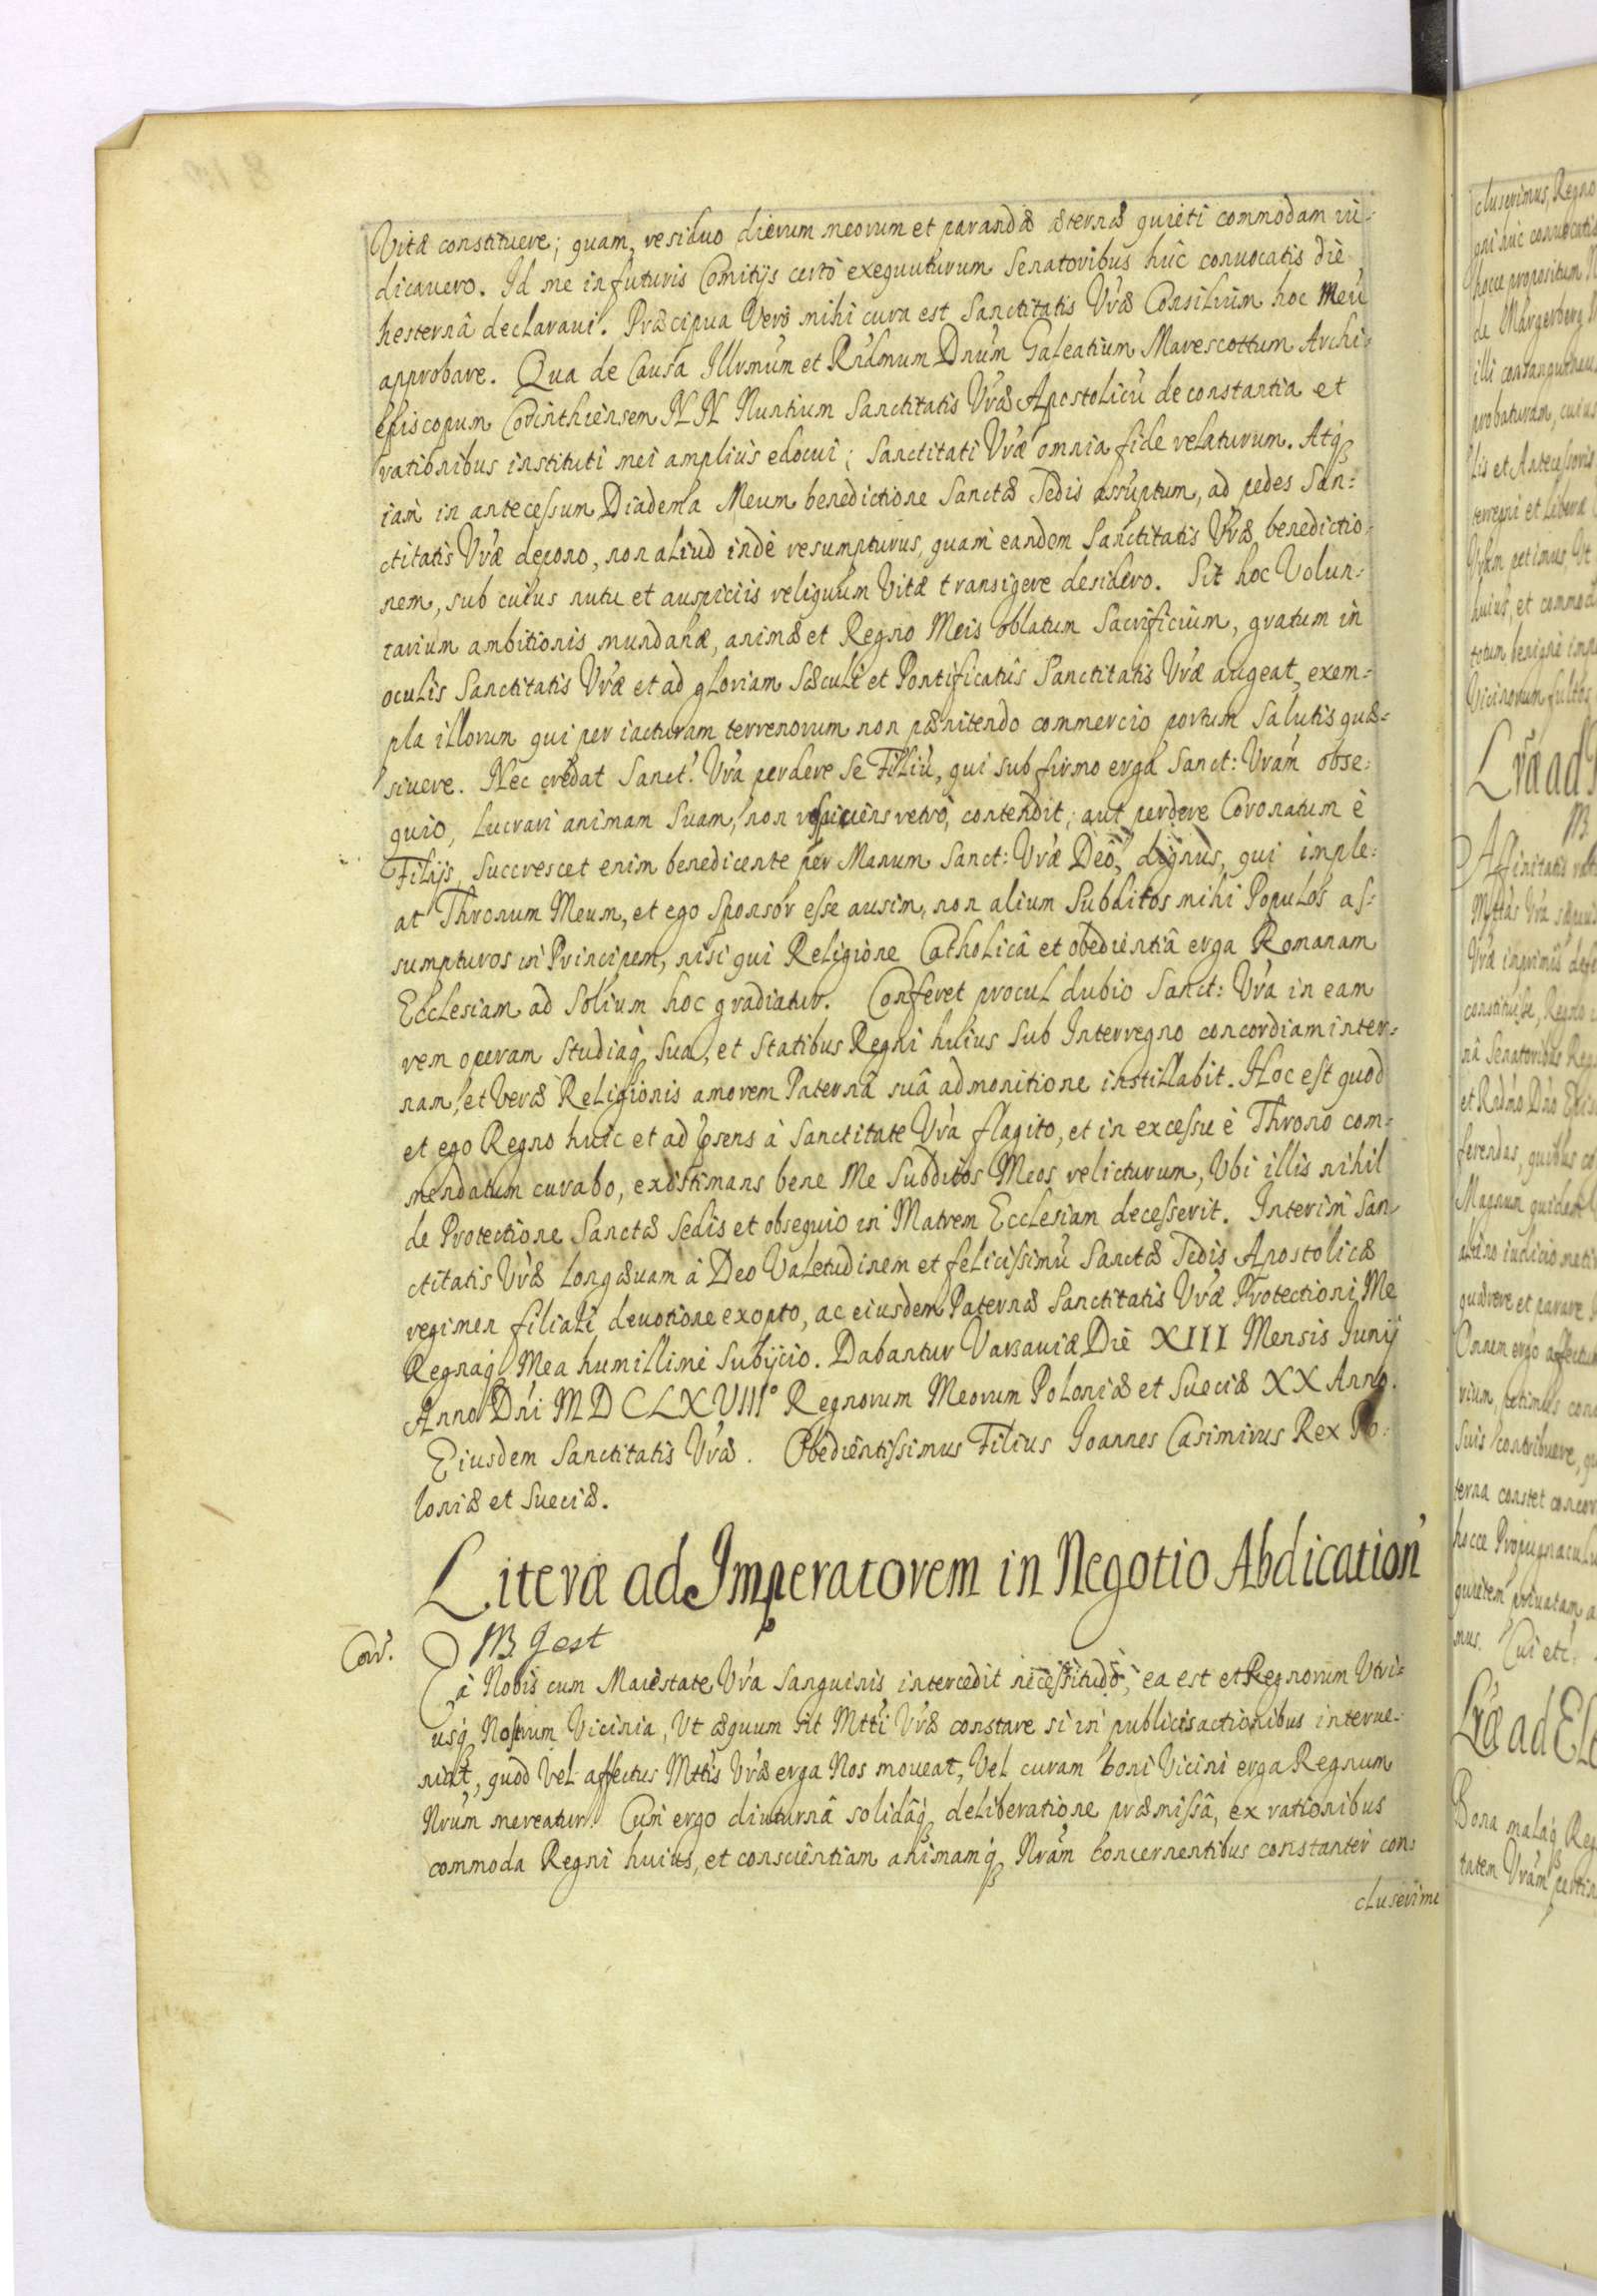 Vitæ constituere; quam, residuo dierum meorum et parandæ æternæ quieti commodam iu-
dicauero. Id me in futuris Comitijs certò exequuturum Senatoribus hûc conuocatis diè
hesternâ declaraui. Præcipua Verò mihi cura est Sanctitatis Vr̃æ Consilium hoc Meũ
approbare. Qua de Causa Illr̃mum et Rñdmum Dnũm Galeatium Marescottum Archi-
Episcopum Corinthiensem N N Nuntium Sanctitatis Vr̃æ Apostolicũ de constantia et
rationibus instituti mei amplius edocui; Sanctitati Vr̃æ omnia fide relaturum. Atq̃
iam in antecessum Diadema Meum benedictione Sanctæ Sedis assumptum, ad pedes San-
ctitatis Vr̃æ depono, non aliud indè resumpturus, quam eandem Sanctitatis Vr̃æ benedictio-
nem, sub cuius nutu et auspiciis reliquum Vitæ transigere desidero. Sit hoc Volun-
tarium ambitionis mundanæ, animæ et Regno Meis oblatum Sacrificium, gratum in
oculis Sanctitatis Vr̃æ et ad gloriam Sæculi et Pontificatûs Sanctitatis Vr̃æ augeat, exem-
pla illorum qui per iacturam terrenorum non pænitendo commercio portum Salutis quæ-
siuere. Nec credat Sanct: Vr̃a perdere Se Filiũ, qui sub firmo erga Sanct: Vrãm obse-
quio, Lucrari animam Suam, non respiciens retrò, contendit; aut perdere Coronatum è
Filijs, Succrescet enim benedicente per Manum Sanct: Vr̃æ Deo, dignus, qui imple-
at Thronum Meum, et ego Sponsor esse ausim, non alium Subditos mihi Populos as-
sumpturos in Principem, nisi qui Religione Catholicâ et obedientiâ erga Romanam
Ecclesiam ad Solium hoc gradiatur. Conferet procul dubio Sanct: Vr̃a in eam
rem operam Studiaq̃ Sua, et Statibus Regni huius Sub Interregno concordiam inter-
nam, et Veræ Religionis amorem Paternâ suâ admonitione instillabit. Hoc est quod
et ego Regno huic et ad p̃sens à Sanctitate Vr̃a flagito, et in excessu è Throno com-
mendatum curabo, existimans bene Me Subditos Meos relicturum, Vbi illis nihil
de Protectione Sanctæ Sedis et obsequio in Matrem Ecclesiam decesserit. Interim San
ctitatis Vr̃æ Longæuam à Deo Valetudinem et felicissimũ Sanctæ Sedis Apostolicæ
regimen filiali deuotione exopto, ac eiusdem Paternæ Sanctitatis Vr̃æ Protectioni Me
Regnaq̃ Mea humillimè Subijcio. Dabantur Varsauiæ Diè XIII Mensis Junij
Anno Dñi M D C L X VIIIº Regnorum Meorum Poloniæ et Sueciæ XX Anno.
Eiusdem Sanctitatis Vr̃æ. Obedientissimus Filius Joannes Casimirus Rex Po-
loniæ et Sueciæ.
Literæ ad Imperatorem in Negotio Abdication̾
Ea Nobis cum Maiestate Vr̃a Sanguinis intercedit necessitudo, ea est et Regnorum Vtri-
usq̃ Nostrum Vicinia, Vt æquum sit Mtti Vr̃æ constare si in publicis actionibus interue-
niat, quod Vel affectus Mttis Vr̃æ erga Nos moueat, Vel curam boni Vicini erga Regnum
Nrũm mereatur. Cum ergo diuturnâ solidâq̃ deliberatione præmissâ, ex rationibus
commoda Regni huius, et conscientiam animamq̃ Nrãm concernentibus constanter con-
cluserimu